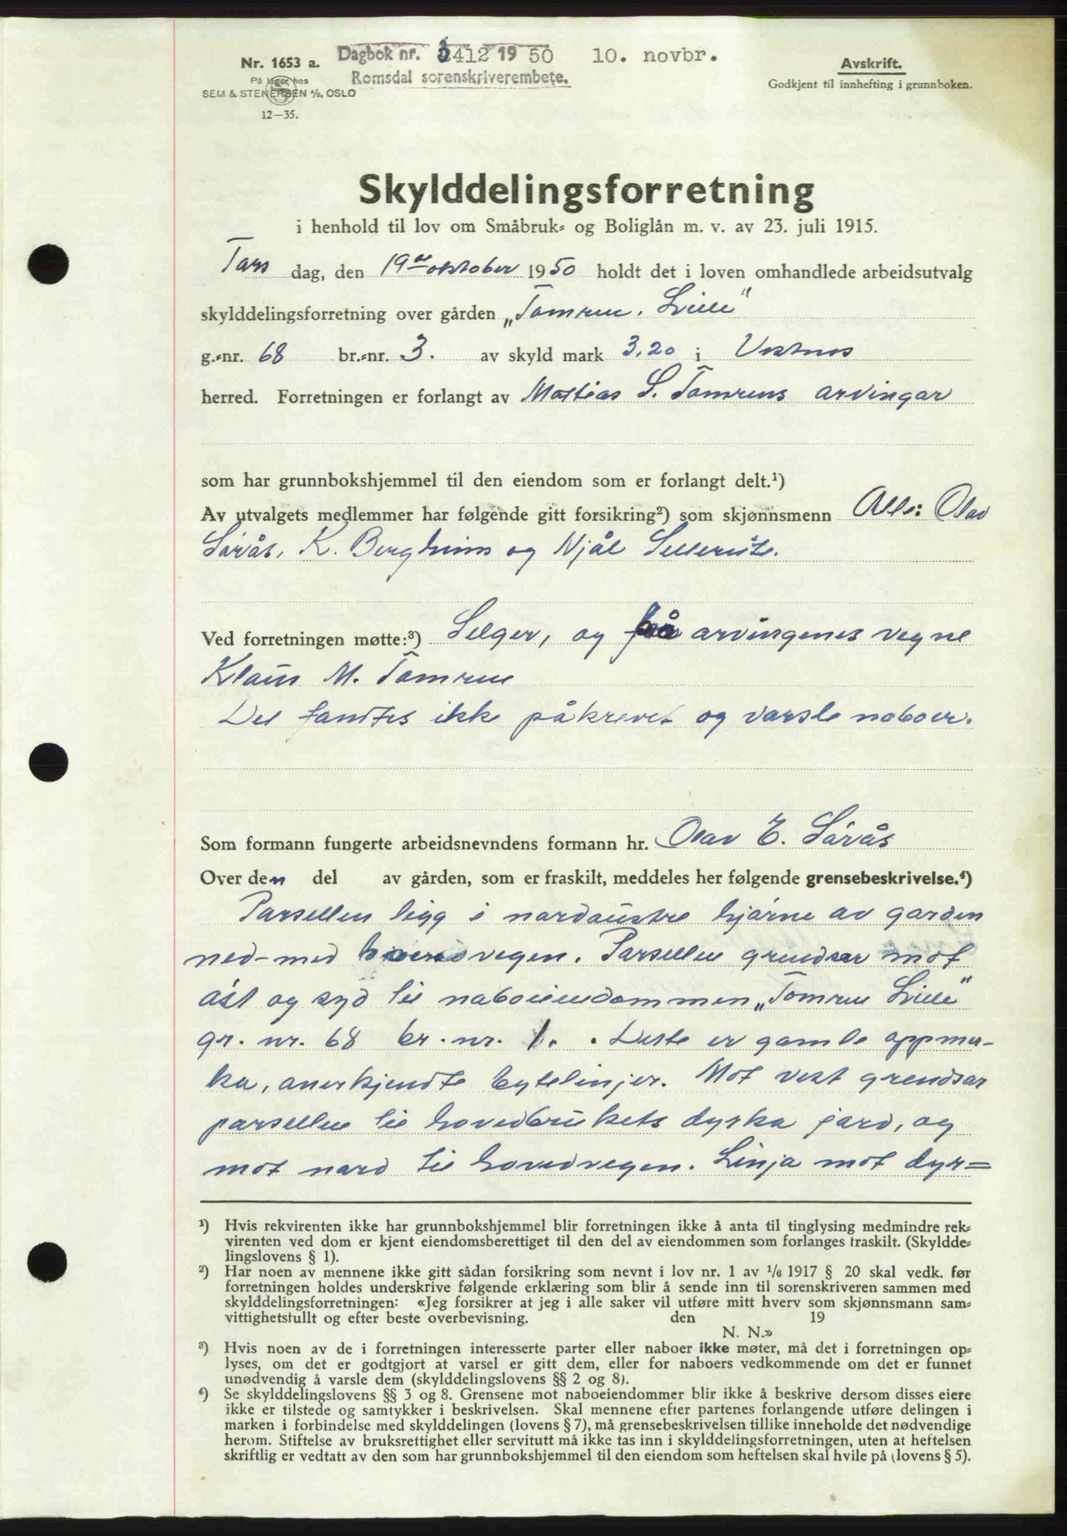 Nr. 1653 a.
På lager hos
SEM & STENERSEN A/S, OSLO
12—35.
Dagbok nr. 3412 19 50 10. novbr.
Romsdal sorenskriverembete.
Avskrift.
Godkjent til innhefting i grunnboken.
Skylddelingsforretning
i henhold til lov om Småbruk- og Boliglån m. v. av 23. juli 1915.
Tors dag, den 19de oktober 1950 holdt det i loven omhandlede arbeidsutvalg
skylddelingsforretning over gården „Tomren, Lille"
g.-nr. 68 br.-nr. 3. av skyld mark 3,20 i Vestnes
herred. Forretningen er forlangt av Mattias S. Tomrens arvingar
som har grunnbokshjemmel til den eiendom som er forlangt delt.¹)
Av utvalgets medlemmer har følgende gitt forsikring²) som skjønnsmenn Alle: Olav
Sørås, K. Bergheim og Njål
Ved forretningen møtte:³) Selger, og på arvingenes vegne
Klaus M. Tomren
Det fandtes ikke påkrevet og varsle naboer.
Som formann fungerte arbeidsnevndens formann hr. Olav E. Sørås
Over den del av gården, som er fraskilt, meddeles her følgende grensebeskrivelse.⁴)
Parsellen ligg i nordaustre hjørne av garden
ned-med hovedvegen. Parsellen grendsar mot
aust og syd til naboeiendommen „Tomren Lille"
gr. nr. 68 br. nr. 1. . Diste er gamle oppmu-
ka, anerkjendte bytelinjer. Mot vest grendsar
parsellen til hovedbrukets dyrka jord, og
mot nord til hovedvegen. Linja mot dyr=
¹) Hvis rekvirenten ikke har grunnbokshjemmel blir forretningen ikke å anta til tinglysing medmindre rek-
virenten ved dom er kjent eiendomsberettiget til den del av eiendommen som forlanges fraskilt. (Skyldde-
lingslovens § 1).
²) Har noen av mennene ikke gitt sådan forsikring som nevnt i lov nr. 1 av 1/6 1917 § 20 skal vedk. før
forretningen holdes underskrive følgende erklæring som blir å sende inn til sorenskriveren sammen med
skylddelingsforretningen: «Jeg forsikrer at jeg i alle saker vil utføre mitt hverv som skjønnsmann sam-
vittighetsfullt og efter beste overbevisning. den 19
N. N.»
³) Hvis noen av de i forretningen interesserte parter eller naboer ikke møter, må det i forretningen op-
lyses, om det er godtgjort at varsel er gitt dem, eller for naboers vedkommende om det er funnet
unødvendig å varsle dem (skylddelingslovens §§ 2 og 8).
⁴) Se skylddelingslovens §§ 3 og 8. Grensene mot naboeiendommer blir ikke å beskrive dersom disses eiere
ikke er tilstede og samtykker i beskrivelsen. Skal mennene efter partenes forlangende utføre delingen i
marken i forbindelse med skylddelingen (lovens § 7), må grensebeskrivelsen tillike inneholde det nødvendige
herom. Stiftelse av bruksrettighet eller servitutt må ikke tas inn i skylddelingsforretningen, uten at heftelsen
skriftlig er vedtatt av den som har grunnbokshjemmel til den eiendom som heftelsen skal hvile på (lovens § 5).